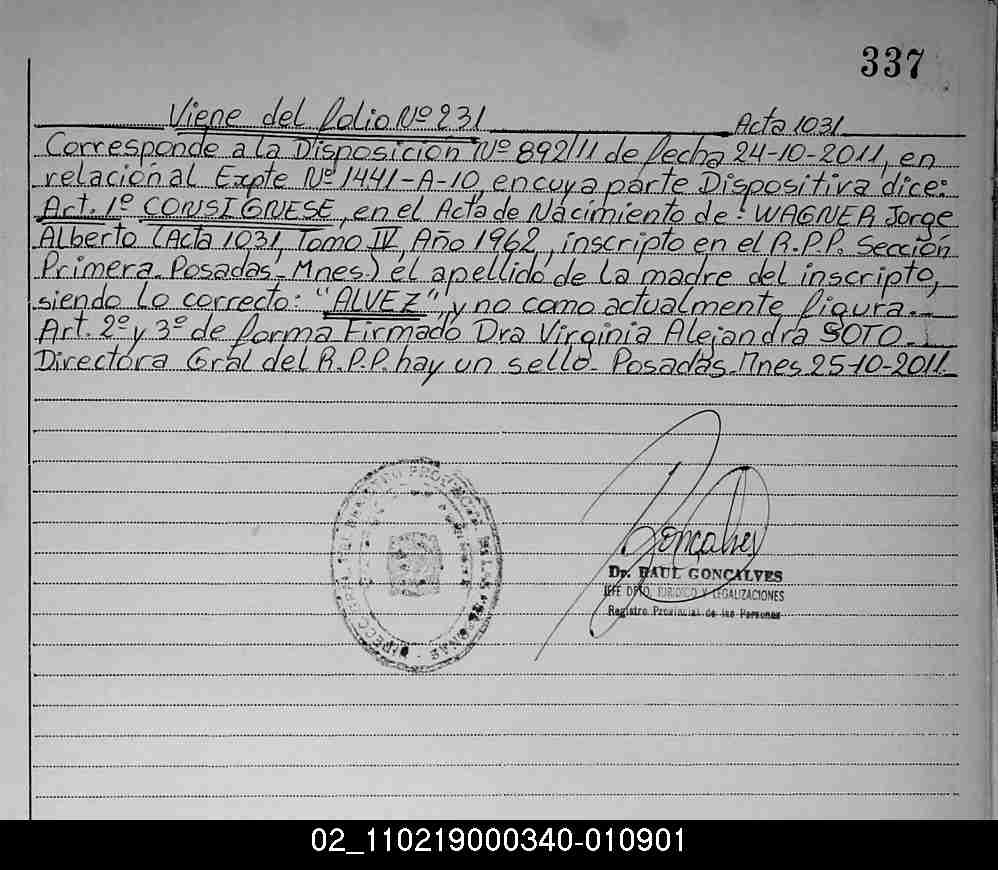 337
Viene del folio Nº 231 Acta 1031
Corresponde a la Disposición Nº 892/11 de fecha 24-10-2011, en
relación al Expte Nº 1441-A-10, en cuya parte Dispositiva dice:
Art. 1º CONSIGNESE, en el Acta de Nacimiento de: WAGNER Jorge
Alberto (Acta 1031, Tomo IV, Año 1962, inscripto en el R.P.P. Sección
Primera-Posadas-Mnes.) el apellido de la madre del inscripto,
siendo lo correcto: "ALVEZ", y no como actualmente figura.-
Art. 2º y 3º de forma Firmado Dra Virginia Alejandra SOTO-
Directora Gral del R.P.P. hay un sello- Posadas-Mnes 25-10-2011.
Goncalves
Dr. RAUL GONCALVES
JEFE DPTO. JURIDICO Y LEGALIZACIONES
Registro Provincial de las Personas
02_110219000340-010901